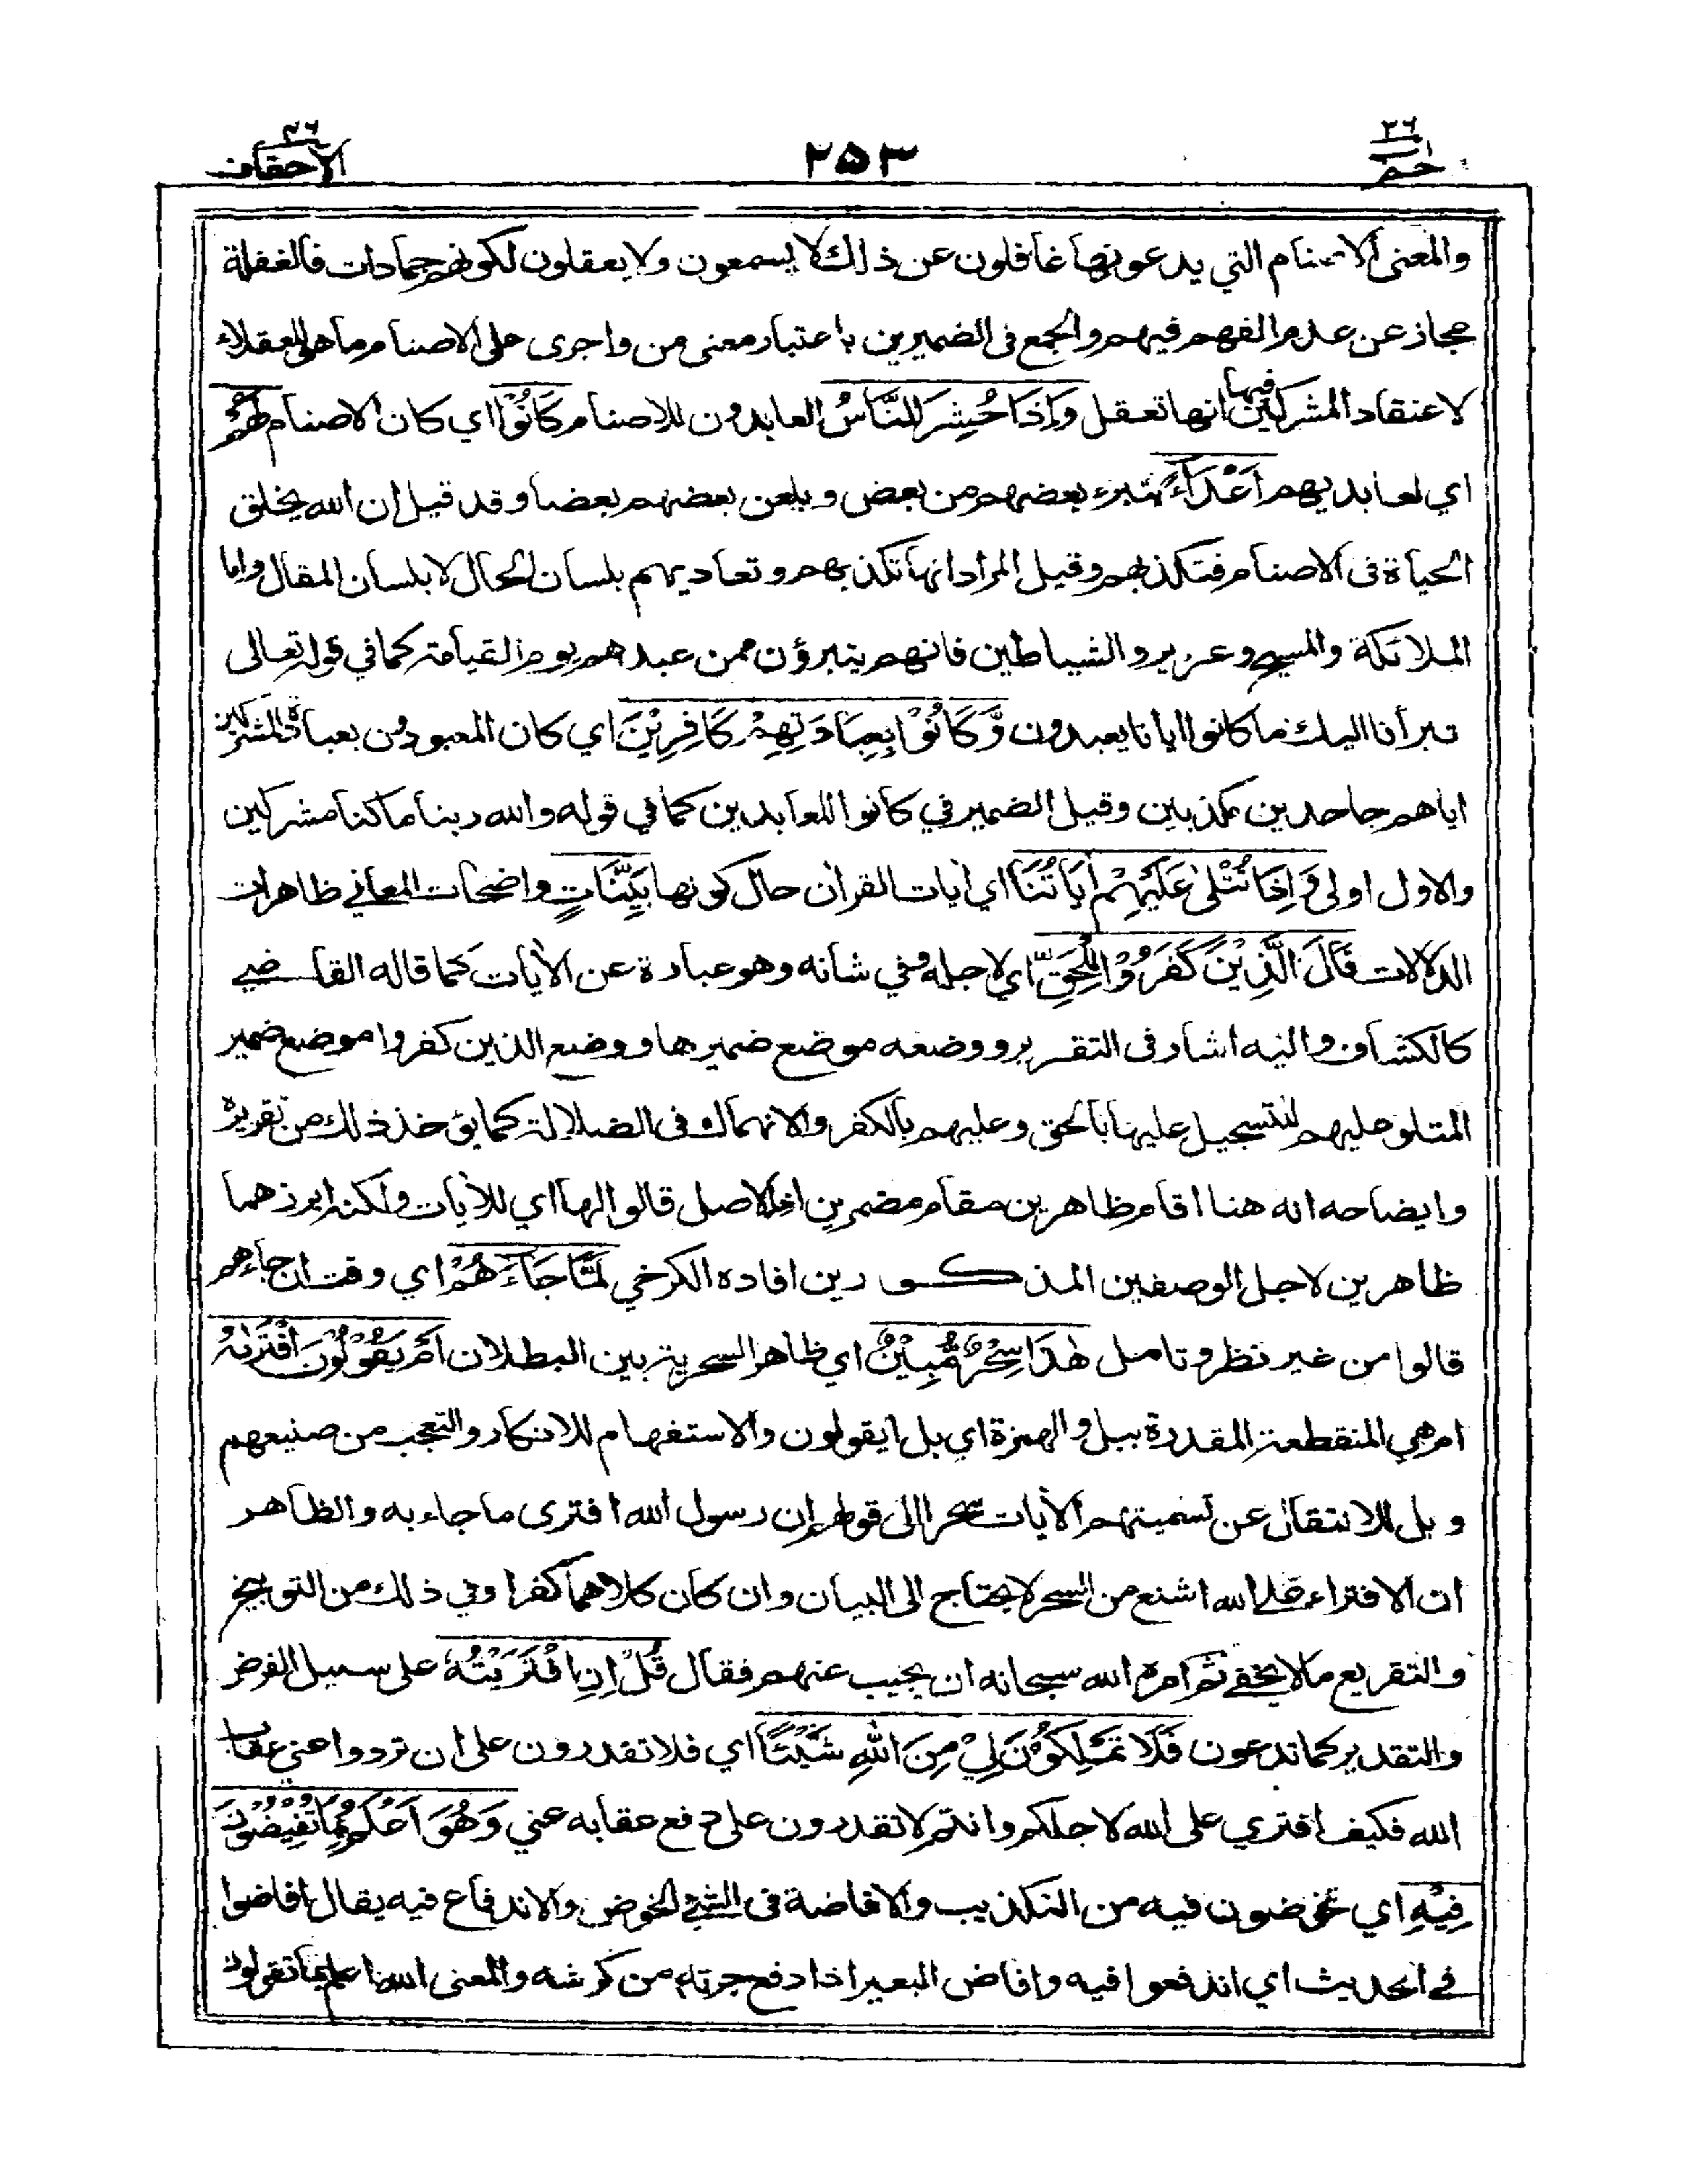 ٢٦
حم
٢٥٣
٤٦
الاحقاف
والمعنى الاصنام التي يدعونها غافلون عن ذلك لا يسمعون ولا يعقلون لكونهم جمادات فالغفلة
مجاز عن عدم الفهم فيهم والجمع فى الضميرين باعتبار معنى من واجرى على الاصنام ما هو للعقلاء
لاعتقاد المشركين فيها انها تعقل وَإِذَا حُشِرَ النَّاسُ العابدون للاصنام كَانُوْا اي كان الاصنام لَهُمْ
اي لعابديهم أَعْدَاءً يتبرء بعضهم من بعض ويلعن بعضهم بعضا وقد قيل ان الله يخلق
الحياة فى الاصنام فتكذبهم وقيل المراد انها تكذبهم وتعاديهم بلسان الحال لا بلسان المقال واما
الملائكة والمسيح وعزير والشياطين فانهم يتبرؤن ممن عبدهم يوم القيامة كما في قوله تعالى
تبرأنا اليك ما كانوا ايانا يعبدون وَّكَانُوْا بِعِبَادَتِهِمْ كَافِرِيْنَ اي كان المعبودون بعبادة المشركين
اياهم جاحدين مكذبين وقيل الضمير في كانوا للعابدين كما في قوله والله ربنا ما كنا مشركين
والاول اولى وَإِذَا تُتْلَى عَلَيْهِمْ أيَاتُنَا اي أيات القرأن حال كونها بَيِّنَاتٍ واضحات المعاني ظاهرات
الدلالات قَالَ الَّذِيْنَ كَفَرُوْا لِلْحَقِّ اي لاجله وفي شانه وهو عبارة عن الأيات كما قاله القاضي
كالكشاف واليه اشار فى التقرير ووضعه موضع ضميرها ووضع الذين كفروا موضع ضمير
المتلو عليهم للتسجيل عليها بالحق وعليهم بالكفر والانهماك فى الضلالة كما يؤخذ ذلك من تقريره
وايضاحه انه هنا اقام ظاهرين مقام مضمرين اذ الاصل قالوا لها اي للأيات ولكنه ابرزهما
ظاهرين لاجل الوصفين المذكورين افاده الكرخي لَمَّا جَاءَهُمْ اي وقت ان جاءهم
قالوا من غير نظر وتامل هٰذَا سِحْرٌ مُّبِيْنٌ اي ظاهر السحرية بين البطلان أَمْ يَقُوْلُوْنَ افْتَرٰىهُ
ام هي المنقطعة المقدرة ببل والهمزة اي بل ايقولون والاستفهام للانكار والتعجب من صنيعهم
وبل للانتقال عن تسميتهم الأيات سحرا الى قولهم ان رسول الله افترى ما جاء به والظاهر
ان الافتراء على الله اشنع من السحر لا يحتاج الى البيان وان كان كلاهما كفرا وفي ذلك من التوبيخ
والتقريع ما لا يخفى ثم امره الله سبحانه ان يجيب عنهم فقال قُلْ إِنِ افْتَرَيْتُهُ على سبيل الفرض
والتقدير كما تدعون فَلَا تَمْلِكُوْنَ لِيْ مِنَ اللهِ شَيْئًا اي فلا تقدرون على ان تردوا عني عقاب
الله فكيف افتري على الله لاجلكم وانتم لا تقدرون على دفع عقابه عني وَهُوَ أَعْلَمُ بِمَا تُفِيْضُوْنَ
فِيْهِ اي تخوضون فيه من التكذيب والافاضة فى الشئ الخوض والاندفاع فيه يقال افاضوا
في الحديث اي اندفعوا فيه وافاض البعير اذا دفع جرته من كرشه والمعنى الله اعلم بما تقولون